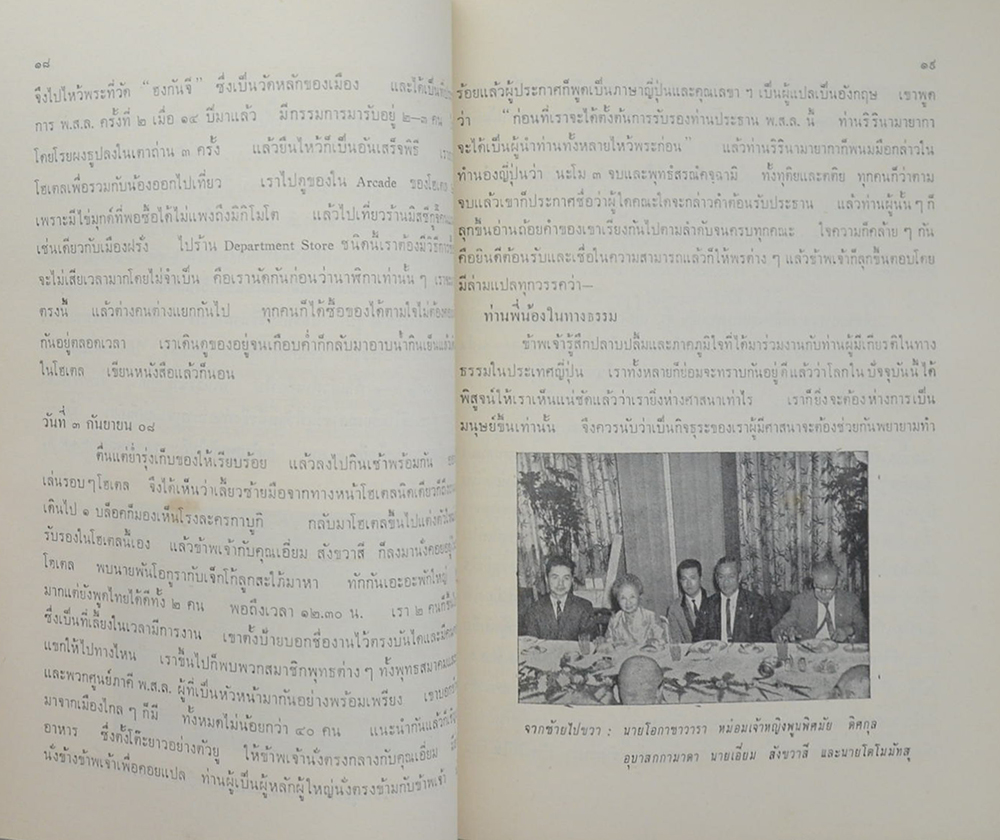 ๑๘
จึงไปไหว้พระที่วัด “ฮงกันจี” ซึ่งเป็นวัดหลักของเมือง และได้เป็นที่
การ พ.ส.ล. ครั้งที่ ๒ เมื่อ ๑๔ ปีมาแล้ว มีกรรมการมารับอยู่ ๒–๓ คน
โดยโรยผงธูปลงในเตาถ่าน ๓ ครั้ง แล้วยืนไหว้ก็เป็นอันเสร็จพิธี
โฮเตลเพื่อรวมกับน้องออกไปเที่ยว เราไปดูของใน Arcade ของโฮเตล
เพราะมีไข่มุกด์ที่พอซื้อได้ไม่แพงถึงมิกิโมโต แล้วไปเที่ยวร้านมิสซึกุชิ
เช่นเดียวกับเมืองฝรั่ง ไปร้าน Department Store ชนิดนี้เราต้องมีวิธีการ
จะไม่เสียเวลามากโดยไม่จำเป็น คือเรานัดกันก่อนว่านาฬิกาเท่านั้น ๆ เรา
ตรงนี้ แล้วต่างคนต่างแยกกันไป ทุกคนก็ได้ซื้อของได้ตามใจไม่ต้อง
กันอยู่ตลอดเวลา เราเดินดูของอยู่จนเกือบค่ำก็กลับมาอาบน้ำกินเย็น
ในโฮเตล เขียนหนังสือแล้วก็นอน
วันที่ ๓ กันยายน ๐๘
ตื่นแต่ย่ำรุ่งเก็บของให้เรียบร้อย แล้วลงไปกินเช้าพร้อมกัน
เล่นรอบๆโฮเตล จึงได้เห็นว่าเลี้ยวซ้ายมือจากทางหน้าโฮเตลนิดเดียวก็ถึง
เดินไป ๑ บล็อคก็มองเห็นโรงละครกาบูกิ กลับมาโฮเตลขึ้นไปแต่งตัว
รับรองในโฮเตลนี้เอง แล้วข้าพเจ้ากับคุณเอี่ยม สังขวาสี ก็ลงมานั่งคอยอยู่
โฮเตล พบนายพันโอกูรากับเจ็กโก้ลูกสะใภ้มาหา ทักกันเอะอะพักใหญ่
มากแต่ยังพูดไทยได้ดีทั้ง ๒ คน พอถึงเวลา ๑๒.๓๐ น. เรา ๒ คนก็ขึ้น
ซึ่งเป็นที่เลี้ยงในเวลามีการงาน เขาตั้งป้ายบอกชื่องานไว้ตรงบันไดและมี
แขกให้ไปทางไหน เราขึ้นไปก็พบพวกสมาชิกพุทธต่าง ๆ ทั้งพุทธสมาคมและ
และพวกศูนย์ภาคี พ.ส.ล. ผู้ที่เป็นหัวหน้ามากันอย่างพร้อมเพรียง เขาบอกว่า
มาจากเมืองไกล ๆ ก็มี ทั้งหมดไม่น้อยกว่า ๔๐ คน แนะนำกันแล้วก็
อาหาร ซึ่งตั้งโต๊ะยาวอย่างตัวยู ให้ข้าพเจ้านั่งตรงกลางกับคุณเอี่ยม
นั่งข้างข้าพเจ้าเพื่อคอยแปล ท่านผู้เป็นผู้หลักผู้ใหญ่นั่งตรงข้ามกับข้าพเจ้า
๑๙
ร้อยแล้วผู้ประกาศก็พูดเป็นภาษาญี่ปุ่นและคุณเลขา ฯ เป็นผู้แปลเป็นอังกฤษ เขาพูด
ว่า “ก่อนที่เราจะได้ตั้งต้นการรับรองท่านประธาน พ.ส.ล. นี้ ท่านริรินามายากา
จะได้เป็นผู้นำท่านทั้งหลายไหว้พระก่อน” แล้วท่านริรินามายากาก็พนมมือกล่าวใน
ทำนองญี่ปุ่นว่า นะโม ๓ จบและพุทธํสรณํคจฺฉามิ ทั้งทุติยและตติย ทุกคนก็ว่าตาม
จบแล้วเขาก็ประกาศชื่อว่าผู้ใดคณะใดจะกล่าวคำต้อนรับประธาน แล้วท่านผู้นั้น ๆ ก็
ลุกขึ้นอ่านถ้อยคำของเขาเรียงกันไปตามลำดับจนครบทุกคณะ ใจความก็คล้าย ๆ กัน
คือยินดีต้อนรับและเชื่อในความสามารถแล้วก็ให้พรต่าง ๆ แล้วข้าพเจ้าก็ลุกขึ้นตอบโดย
มีล่ามแปลทุกวรรคว่า—
ท่านพี่น้องในทางธรรม
ข้าพเจ้ารู้สึกปลาบปลื้มและภาคภูมิใจที่ได้มาร่วมงานกับท่านผู้มีเกียรติในทาง
ธรรมในประเทศญี่ปุ่น เราทั้งหลายก็ย่อมจะทราบกันอยู่ดีแล้วว่าโลกใน ปัจจุบันนี้ ได้
พิสูจน์ให้เราเห็นแน่ชัดแล้วว่าเรายิ่งห่างศาสนาเท่าไร เราก็ยิ่งจะต้อง ห่างการเป็น
มนุษย์ขึ้นเท่านั้น จึงควรนับว่าเป็นกิจธุระของเราผู้มีศาสนาจะต้องช่วยกันพยายามทำ
จากซ้ายไปขวา : นายโอกาซาวารา หม่อมเจ้าหญิงพูนพิศมัย ดิศกุล
อุบาสกกามาดา นายเอี่ยม สังขวาสี และนายโตโมมัทสุ